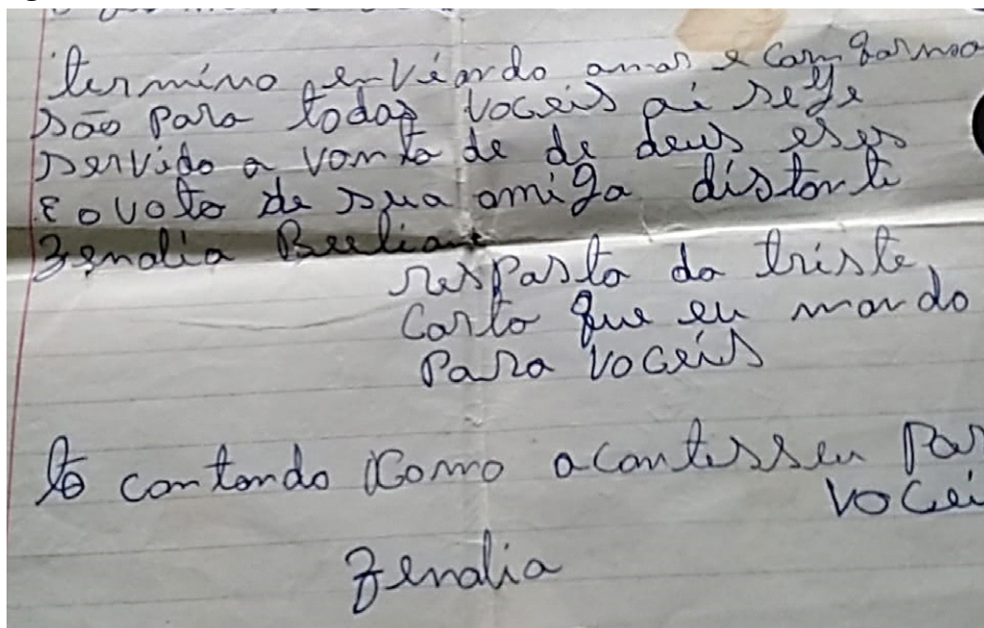 termino en viando amor e comforma
são para todas voceis ai seje
servido a vonta de de deus eses
e o voto de sua amiga distante
Zenalia
resposta da triste
carta que eu mando
Para voceis
to contando como acontesseu Par
vocei
Zenalia